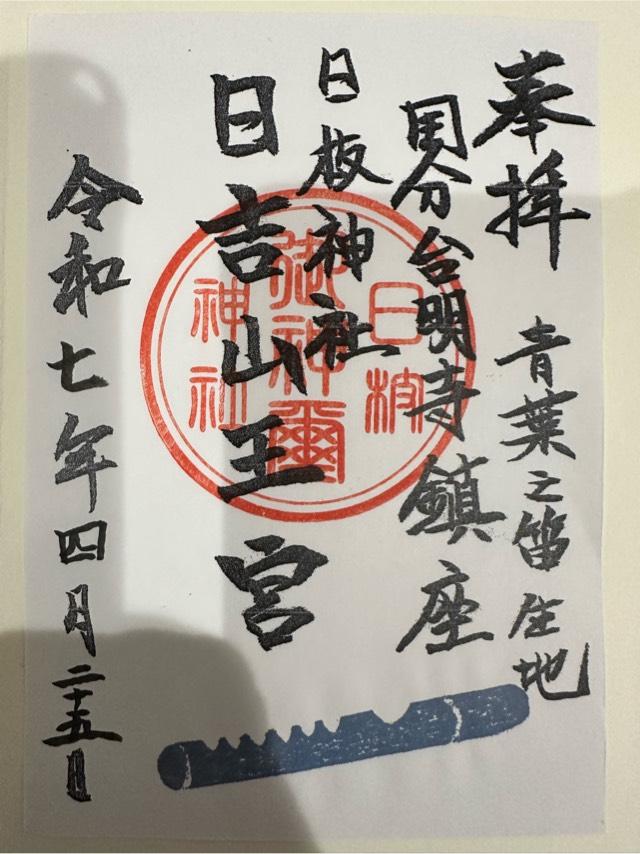 奉拝
青葉之笛生地
国分台明寺鎮座
日枝神社
日吉山王宮
令和七年四月二十五日
日枝
御神璽
神社